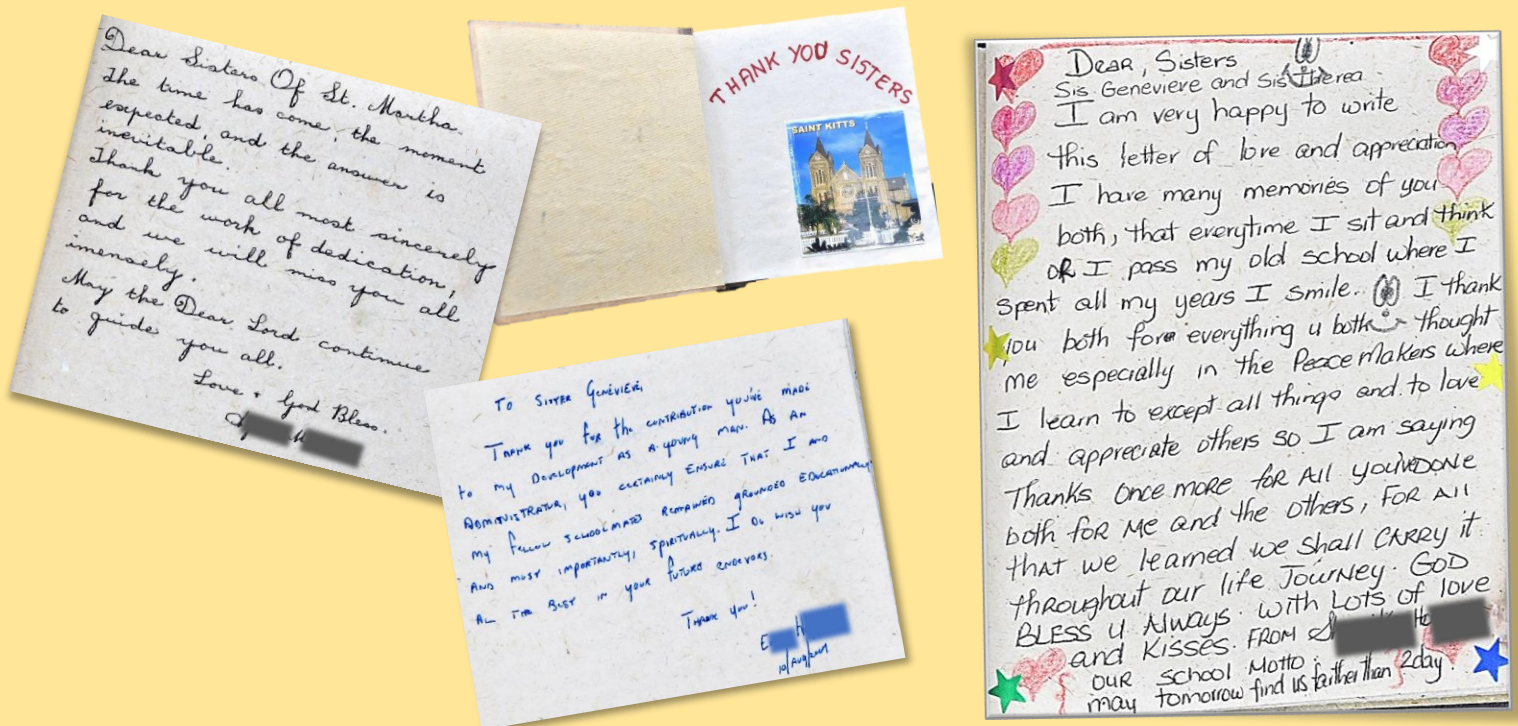 Dear Sisters Of St. Martha.
The time has come, the moment
expected, and the answer is
inevitable.
Thank you all most sincerely
for the work of dedication,
and we will miss you all
imensely.
May the Dear Lord continue
to guide you all.
Love + God Bless.
THANK YOU SISTERS
SAINT KITTS
To Sister Genevieve,
Thank you for the contribution you've made
to my development as a young man. As an
administrator, you certainly ensure that I and
my fellow schoolmates remained grounded educationally
and most importantly, spiritually. I do wish you
all the best in your future endevors.
Thank you!
10/Aug/2009
Dear, Sisters
Sis. Genevieve and Sis Therea
I am very happy to write
this letter of love and appreciation
I have many memories of you
both, that everytime I sit and think
OR I pass my old school where I
spent all my years I smile. I thank
you both for everything u both thought
me especially in the Peace Makers where
I learn to except all things and to love
and appreciate others so I am saying
Thanks once more for All you'vE DONE
both foR Me and the others, FOR All
that we learned we shall CARRY it
thRoughout our life JouRney. GOD
BLESS u Always. With LOTS of love
and Kisses. FROM
OUR School Motto:
may tomorrow find us farther than 2day.